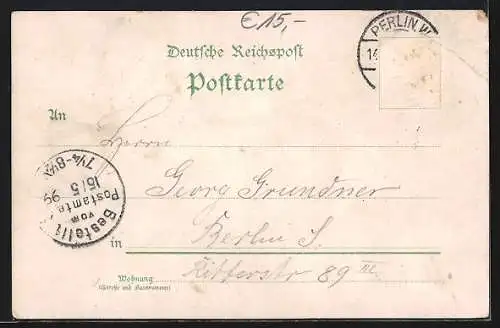 € 15,-
BERLIN, W.
14
Deutsche Reichspost
Postkarte
An
Herrn
Georg Grundner
in Berlin S.
Wohnung Ritterstr 89 III.
(Straße und Hausnummer)
Bestellt
vom
Postamte
15/5 99
7¼-8½V.